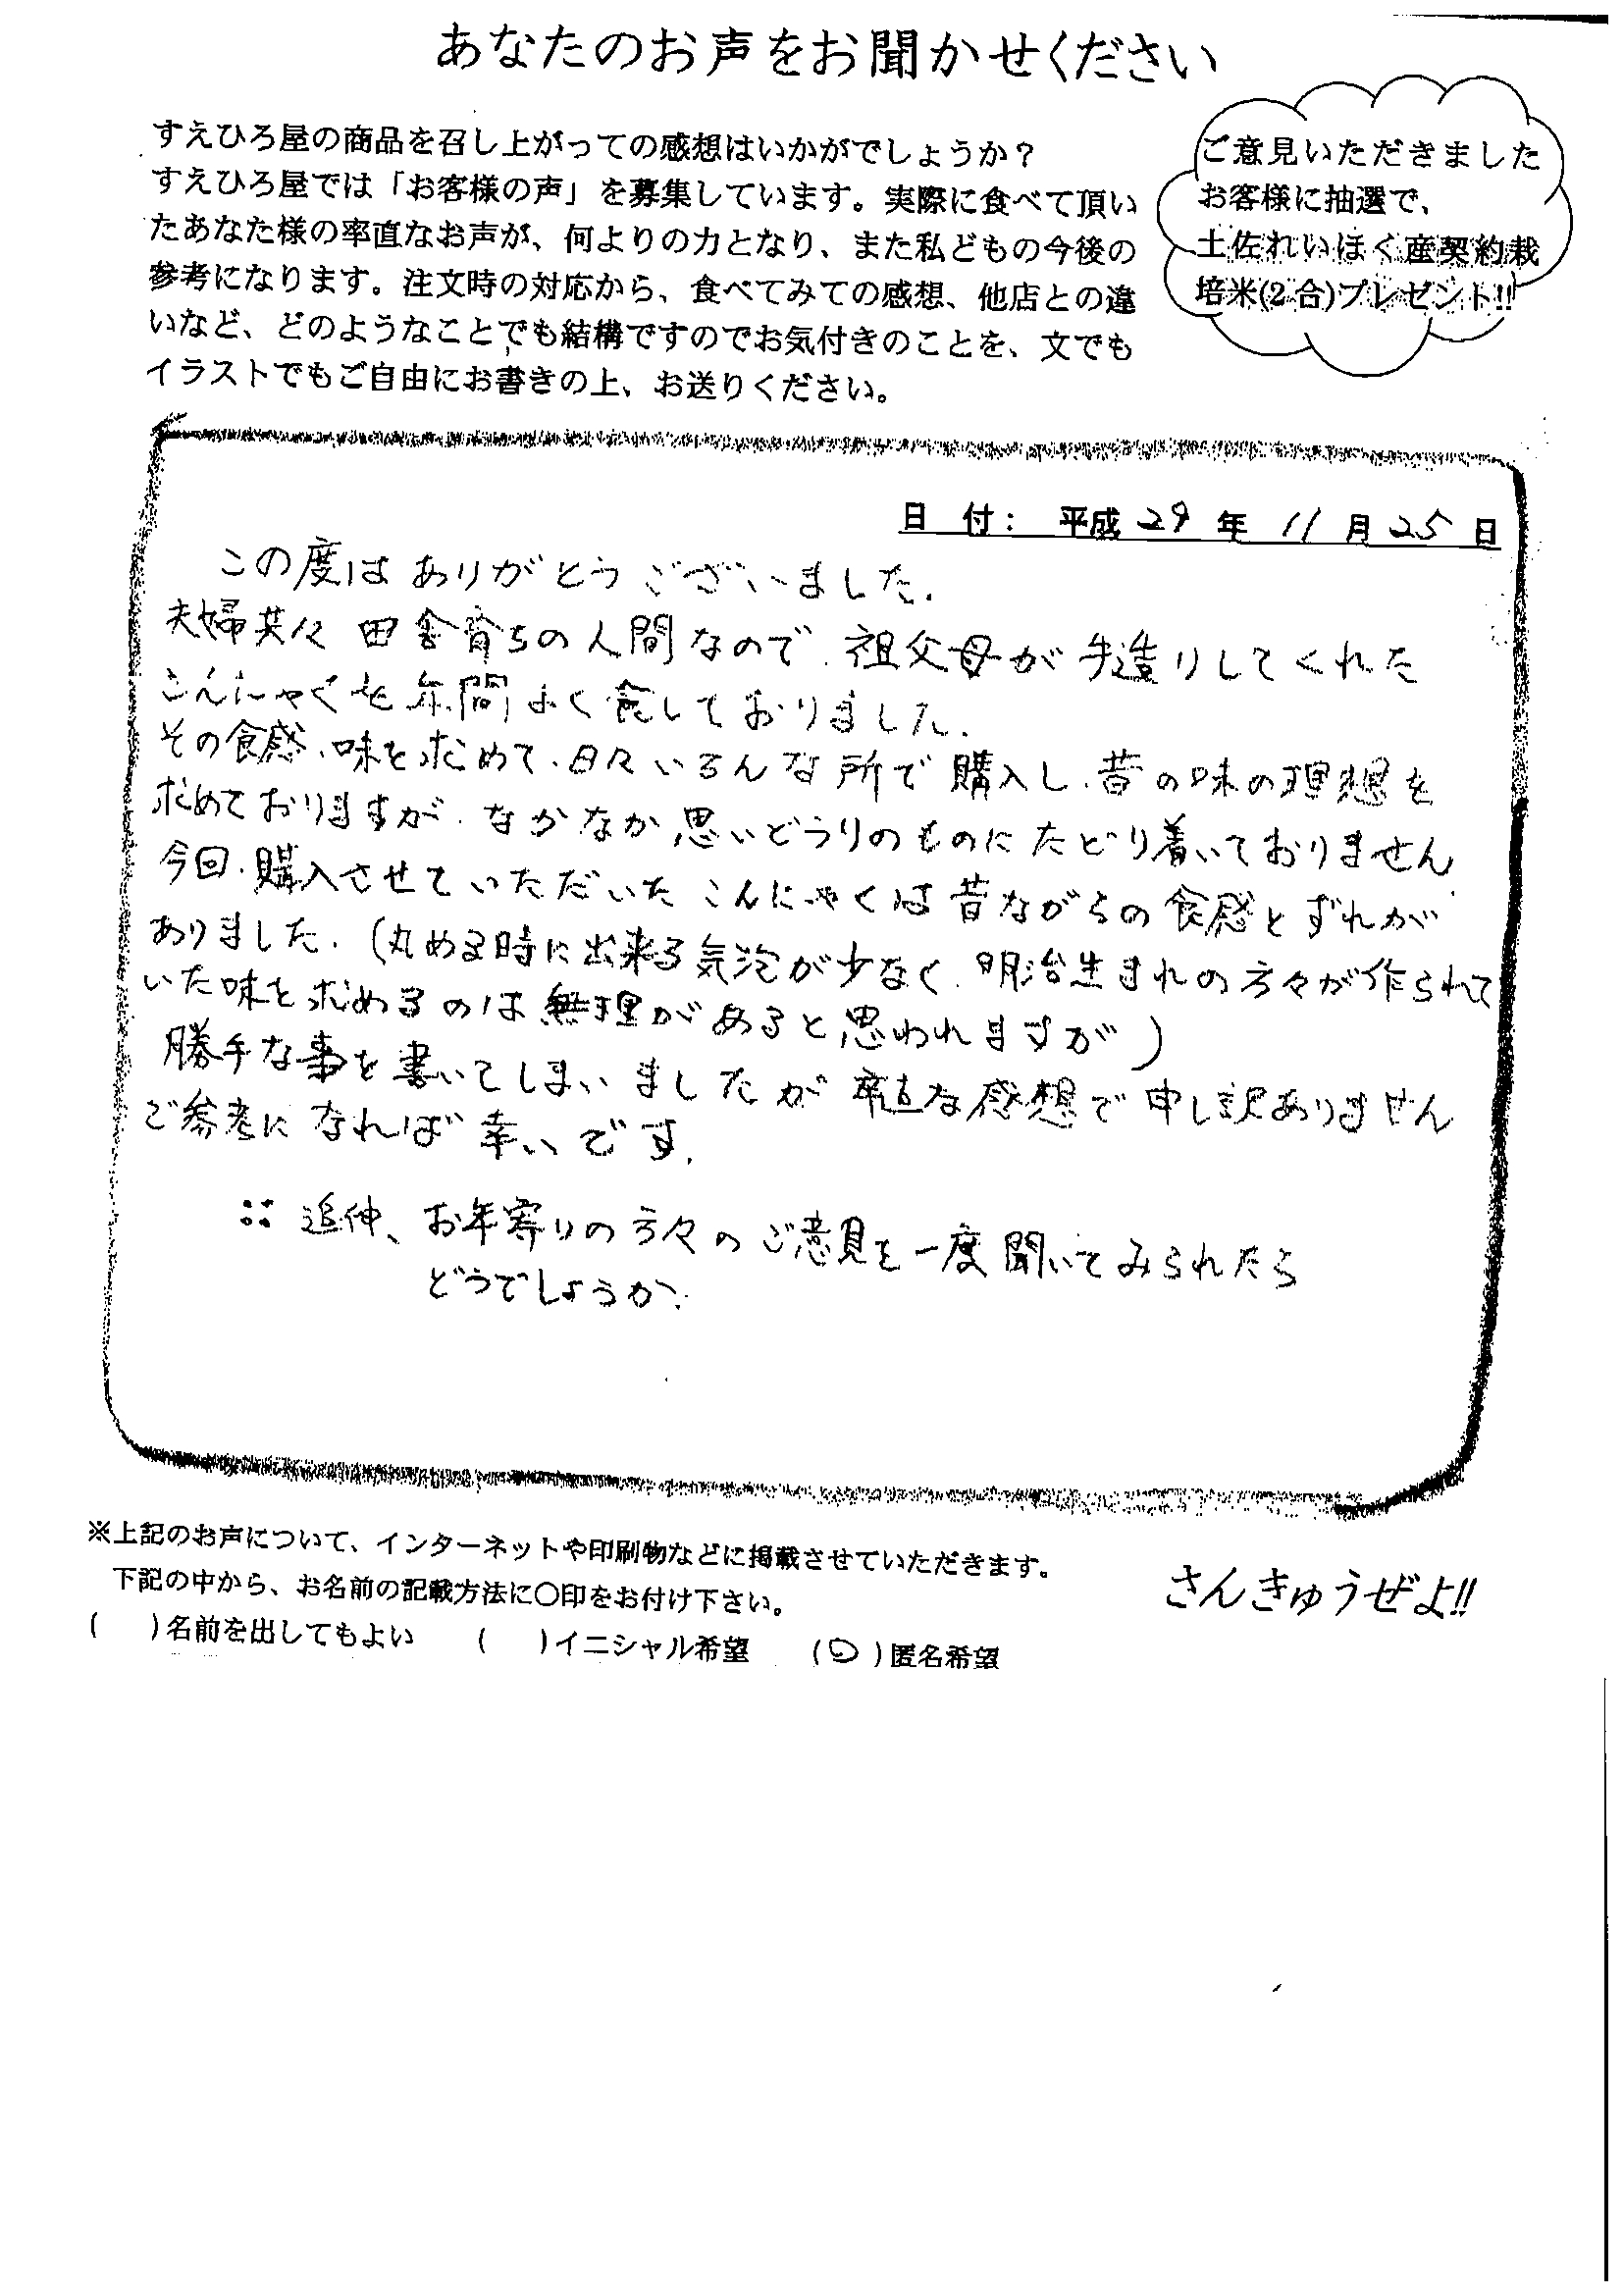 あなたのお声をお聞かせください
すえひろ屋の商品を召し上がっての感想はいかがでしょうか？
すえひろ屋では「お客様の声」を募集しています。実際に食べて頂い
たあなた様の率直なお声が、何よりの力となり、また私どもの今後の
参考になります。注文時の対応から、食べてみての感想、他店との違
いなど、どのようなことでも結構ですのでお気付きのことを、文でも
イラストでもご自由にお書きの上、お送りください。
ご意見いただきました
お客様に抽選で、
土佐れいほく産契約栽
培米(2合)プレゼント!!
日 付： 平成 29 年 11 月 25 日
この度は ありがとう ございました.
夫婦共々 田舎育ちの人間なので、祖父母が 手造りしてくれた
こんにゃくを 年間 よく食しておりました.
その食感、味を求めて、日々いろんな所で購入し、昔の味の理想を
求めておりますが、なかなか思いどうりのものに たどり着いておりません
今回、購入させていただいた こんにゃくは昔ながらの食感とずれが
ありました. (丸める時に出来る気泡が少なく、明治生まれの方々が作られて
いた味を求めるのは無理があると思われますが)
勝手な事を書いてしまいましたが 率直な感想で申し訳ありません
ご参考になれば 幸いです.
:: 追伸、お年寄りの方々のご意見を一度聞いてみられたら
どうでしょうか.
※上記のお声について、インターネットや印刷物などに掲載させていただきます。
下記の中から、お名前の記載方法に○印をお付け下さい。
( )名前を出してもよい ( )イニシャル希望 (○)匿名希望
さんきゅうぜよ!!